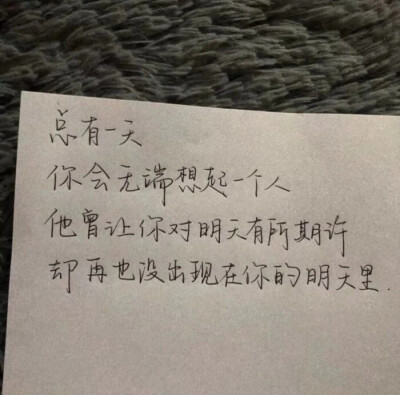 总有一天
你会无端想起一个人
他曾让你对明天有所期许
却再也没出现在你的明天里.